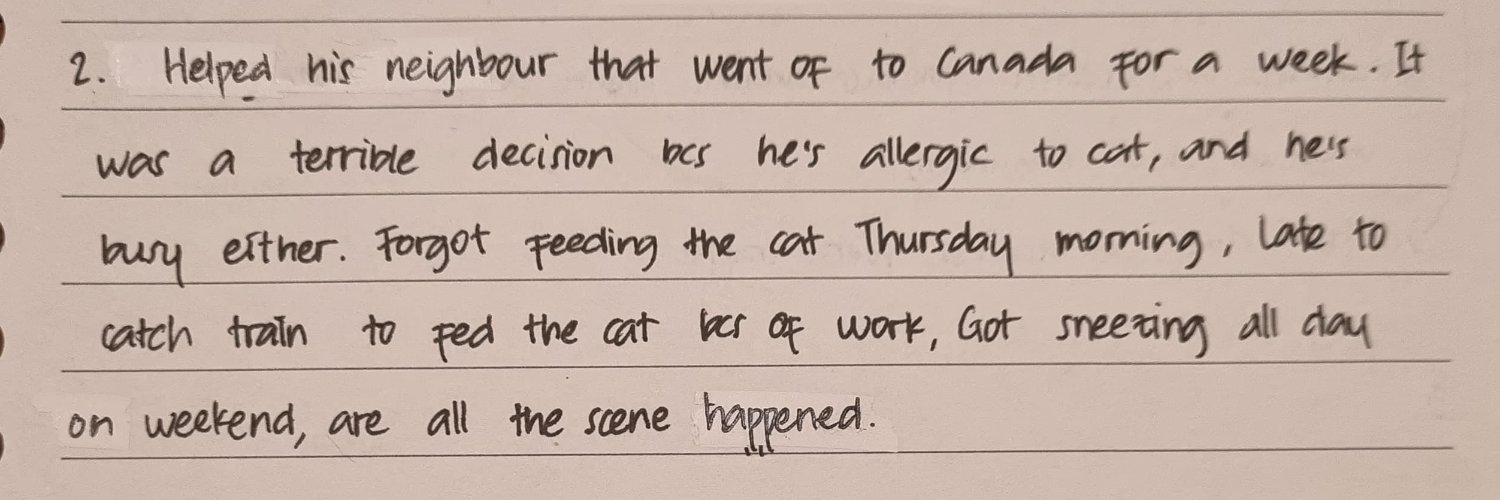 2. Helped his neighbour that went of to Canada for a week. It
was a terrible decision bcs he's allergic to cat, and he's
busy either. Forgot feeding the cat Thursday morning, late to
catch train to fed the cat bcs of work, Got sneezing all day
on weekend, are all the scene happened.